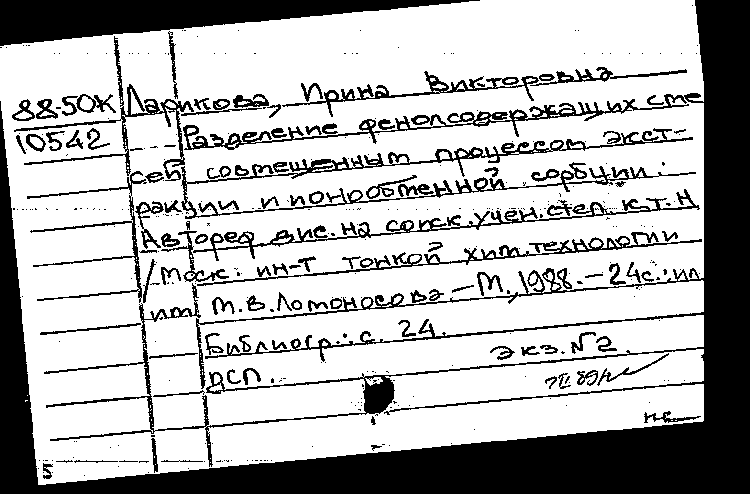 88-50К
10542
Ларикова, Ирина Викторовна
Разделение фенолсодержащих сме
сей совмещенным процессом экст-
ракции и ионообменной сорбции:
Автореф. дис. на соиск. учен. степ. к.т.н
/Моск. ин-т тонкой хим. технологии
им. М.В. Ломоносова. – М., 1988. – 24с.: ил
Библиогр.: с. 24.
ДСП.
Экз. №2.
5